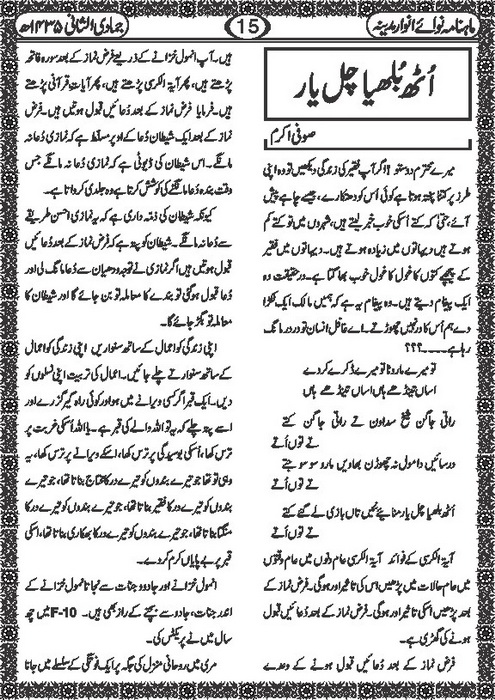 ماہنامہ نوائے انوار مدینہ
15
جمادی الثانی ۱۴۳۵ھ
اُٹھ بُلھیا چل یار
صوفی اکرم
میرے محترم دوستو! اگر آپ فقیر کی زندگی دیکھیں تو وہ اپنی
طرز پر کتنا پختہ ہوتا ہے کوئی اُس کو دھتکارے، جیسے چاہے پیش
آئے، حتیٰ کہ کتے اُسکی خوب خبر لیتے ہیں، شہروں میں تو کتے کم
ہوتے ہیں دیہاتوں میں زیادہ ہوتے ہیں۔ دیہاتوں میں فقیر
کے پیچھے کتوں کا غول کا غول خوب بھاگتا ہے۔ درحقیقت وہ
ایک پیغام دیتے ہیں۔ وہ پیغام یہ ہے کہ ہمیں مالک ایک ٹکڑا
دے ہم اُس کا در نہیں چھوڑتے۔ اے غافل انسان تو در در مانگ
رہا ہے.....؟؟؟؟
تو میرے مار و نا تو میرے ذکرے کر دے
اساں تینڈھے ہاں اساں تینڈھے ہاں
راتی جاگن شیخ سداون تے راتی جاگن کتے
تے توں اُتے
در سائیں دا مول نہ چھوڑن بھاویں مارو سو سو جتے
تے توں اُتے
اُٹھ بلھیا چل یار منا لے نئیں تاں بازی لے گئے کتے
تے توں اُتے
آیۃ الکرسی کے فوائد آیۃ الکرسی عام دنوں میں عام وقتوں
میں عام حالات میں پڑھیں اس کی تاثیر اور ہوگی۔ فرض نماز کے
بعد پڑھیں اسکی تاثیر اور ہوگی۔ فرض نماز کے بعد دُعائیں قبول
ہونے کی گھڑی ہے۔
فرض نماز کے بعد دُعائیں قبول ہونے کے وعدے
ہیں۔ آپ انمول خزانے کے ذریعے فرض نماز کے بعد سورہ فاتحہ
پڑھتے ہیں، پھر آیۃ الکرسی پڑھتے ہیں، پھر آیات قرآنی پڑھتے
ہیں۔ فرمایا فرض نماز کے بعد دُعائیں قبول ہوتیں ہیں۔ فرض
نماز کے بعد ایک شیطان دُعا کے اوپر مسلط ہے کہ نمازی دُعا نہ
مانگے۔ اس شیطان کی ڈیوٹی ہے کہ نمازی دُعا نہ مانگے جس
وقت بندہ دُعا مانگنے کی کوشش کرتا ہے وہ جلدی کرواتا ہے۔
کیونکہ شیطان کی ذمہ داری ہے کہ یہ نمازی احسن طریقے
سے دُعا نہ مانگے۔ شیطان کو پتہ ہے کہ فرض نماز کے بعد دُعائیں
قبول ہوتیں ہیں اگر نمازی نے توجہ دھیان سے دُعا مانگ لی اور
دُعا قبول ہوگئی تو بندے کا معاملہ تو بن جائے گا اور شیطان کا
معاملہ تو بگڑ جائے گا۔
اپنی زندگی کو اعمال کے ساتھ سنواریں اپنی زندگی کو اعمال
کے ساتھ سنوارتے چلے جائیں۔ اعمال کی تربیت اپنی نسلوں کو
دیں۔ ایک قبر اگر کسی ویرانے میں ہو اور کوئی راہ گیر گزرے اور
اسے پتہ چلے کہ یہ تو اللہ والے کی قبر ہے۔ یا اللہ اُسکی غربت پر
ترس کھا، اُسکی بوسیدگی پر ترس کھا، اسکے ویرانے پر ترس کھا، یہ
وہی تو تھا جو تیرے بندوں کو تیرے در کا محتاج بناتا تھا، جو تیرے
بندوں کو تیرے در کا فقیر بناتا تھا، جو تیرے بندوں کو تیرے در کا
منگتا بناتا تھا، جو تیرے بندوں کو تیرے در کا بھکاری بناتا تھا، اسکی
قبر پر بے پایاں کرم کر دے۔
انمول خزانے اور جادو و جنات سے نجات انمول خزانے کے
اندر جنات، جادو سے بچنے کے راز بھی ہیں۔ F-10 میں چھ
سال میں نے پریکٹس کی۔
مری میں روحانی منزل کی جگہ پر ایک فوتگی کے سلسلے میں جانا